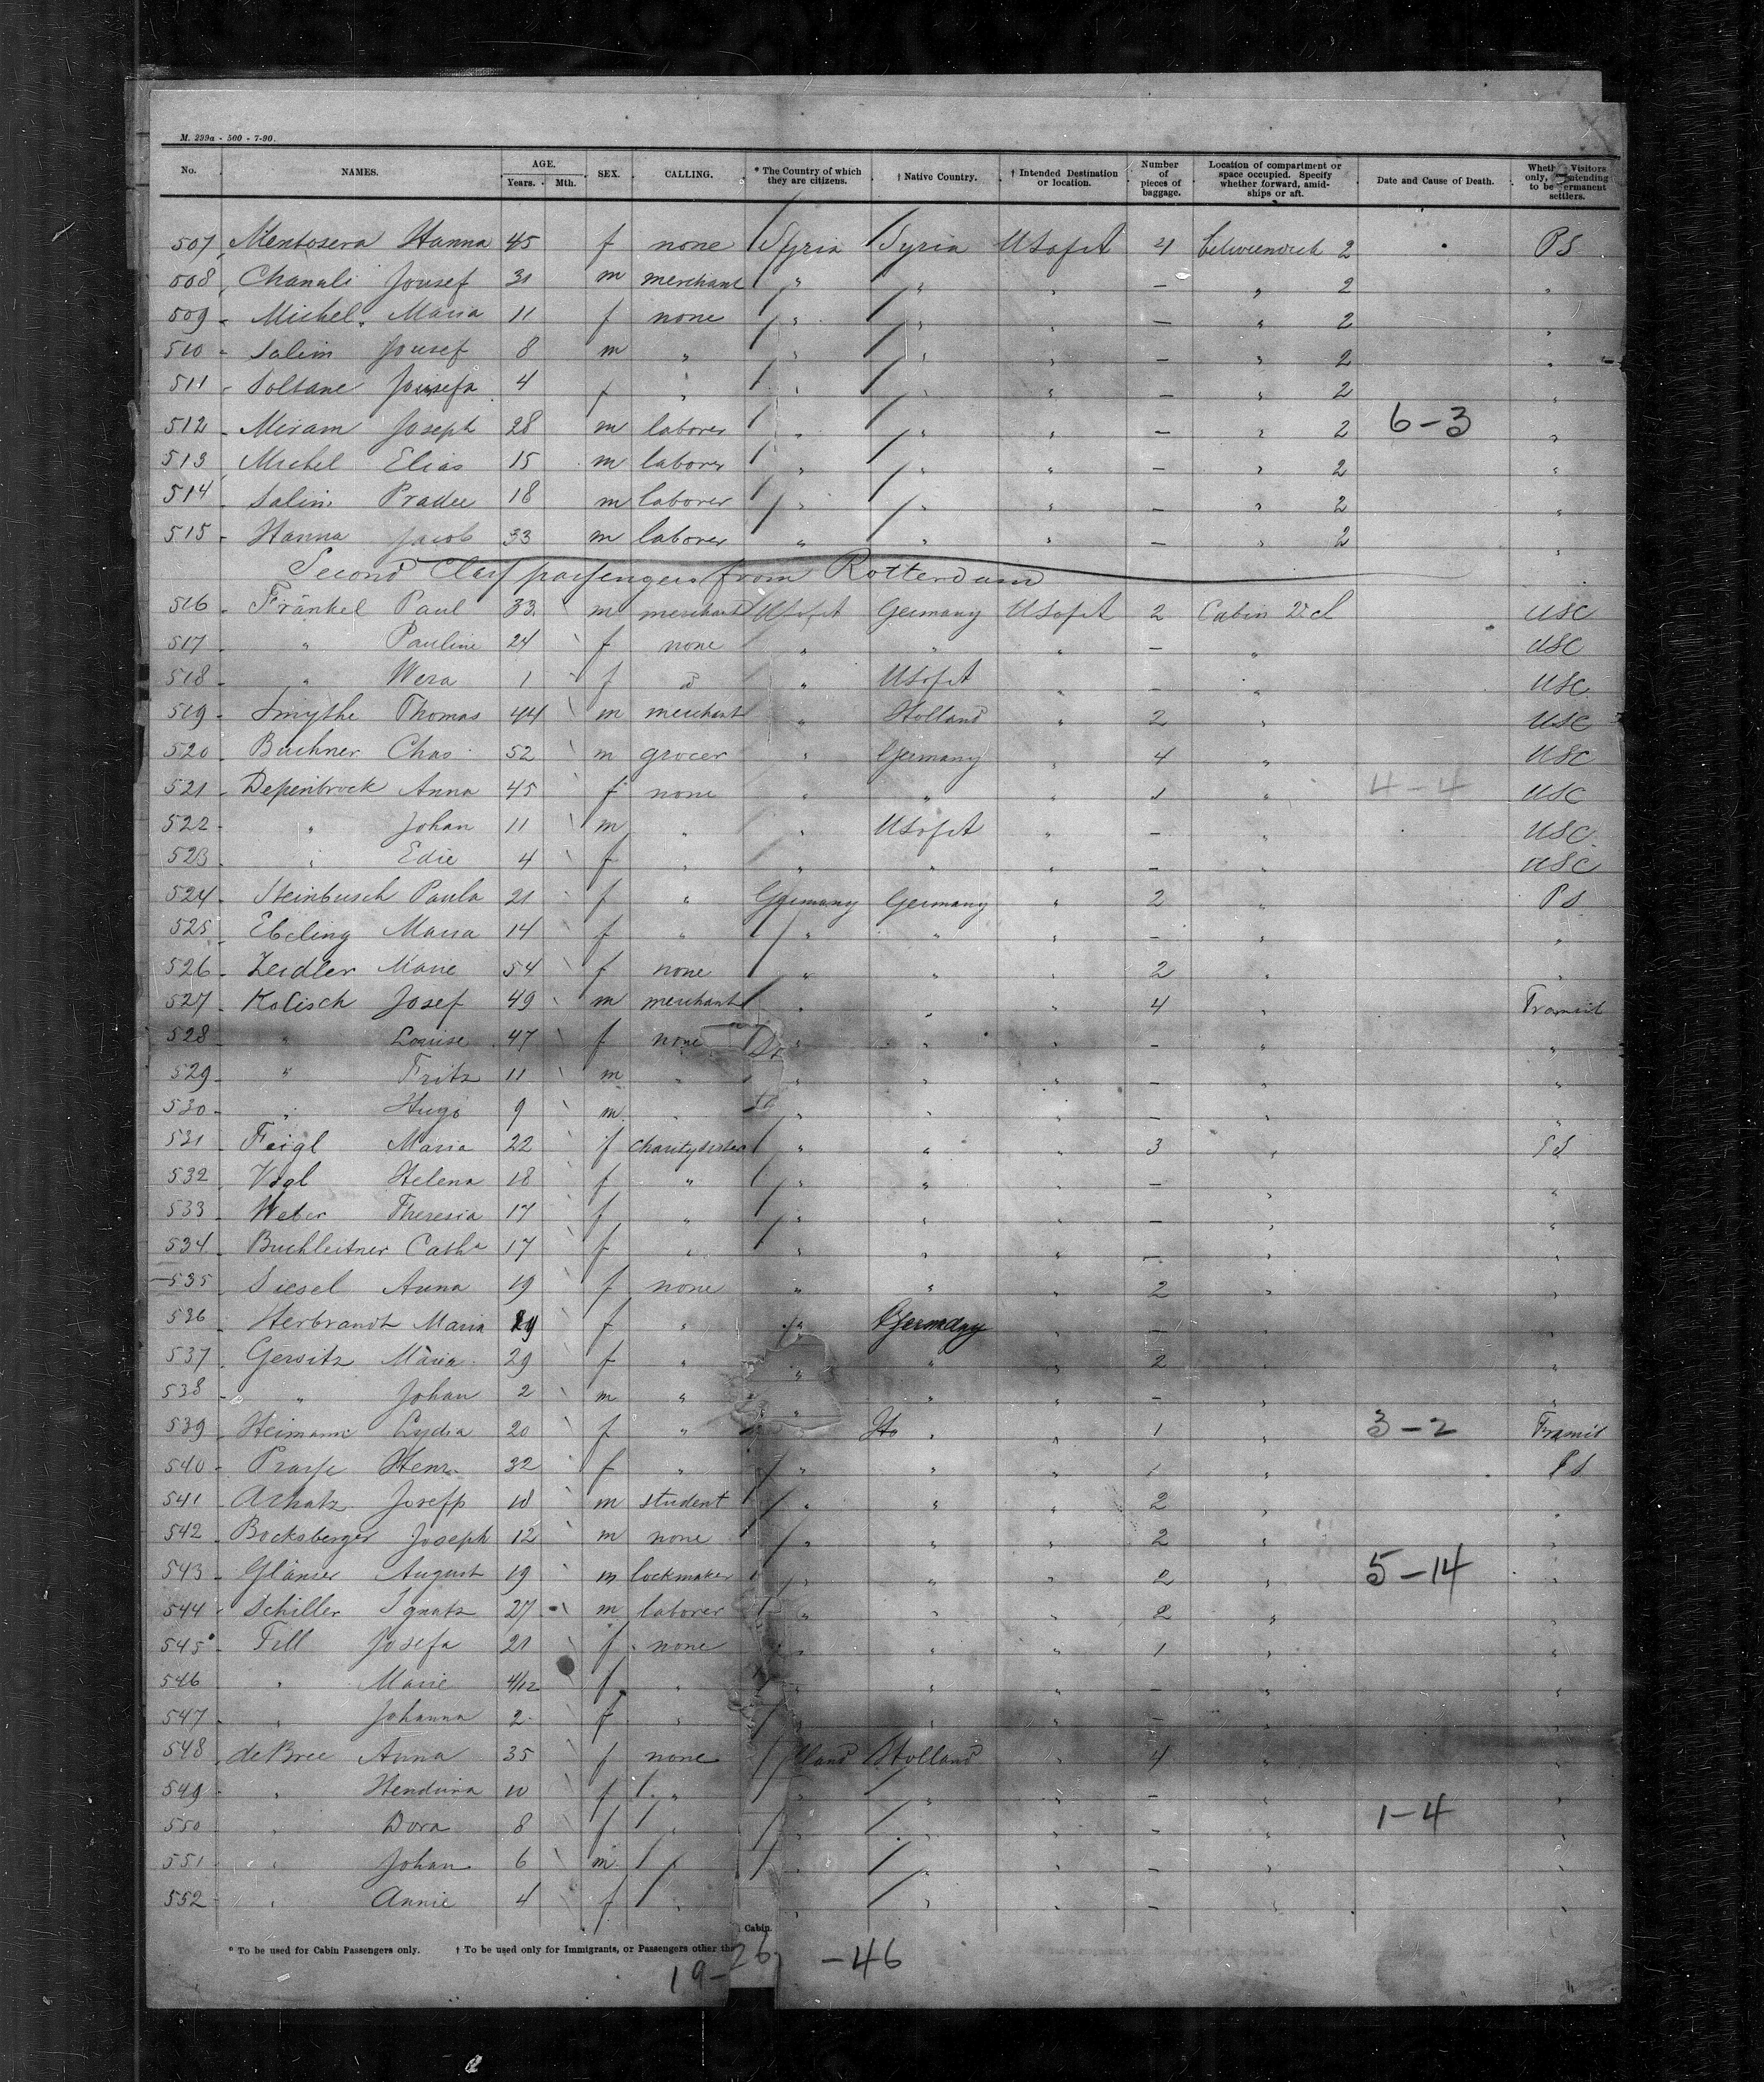 M. 299a - 500 - 7-90.
No. NAMES. AGE. Years. Mth. SEX. CALLING. * The Country of which they are citizens. † Native Country. † Intended Destination or location. Number of pieces of baggage. Location of compartment or space occupied. Specify whether forward, amidships or aft. Date and Cause of Death. Visitors only, intending to be permanent settlers.
507 Hanna 45 f none Syria Syria USofA 4 2 PS
508 Chanali Jousef 31 m merchant " " " — " 2 "
509 Michel Maria 11 f none " " " — " 2 "
510 Salim Jousef 8 m " " " " — " 2 "
511 Soltane Jousefa 4 f " " " " — " 2 "
512 Miram Joseph 28 m laborer " " " — " 2 6-3 "
513 Michel Elias 15 m laborer " " " — " 2 "
514 Salim 18 m laborer " " " — " 2 "
515 Hanna Jacob 33 m laborer " " " — " 2 "
Second Class passengers from Rotterdam
516 Fränkel Paul 33 m merchant USofA Germany USofA 2 Cabin 2d cl USC
517 " Pauline 24 f none " " " — " USC
518 " Wera 1 f d " USofA " — " USC
519 Smythe Thomas 44 m merchant " Holland " 2 " USC
520 Buchner Chas 52 m grocer " Germany " 4 " USC
521 Depenbrock Anna 45 f none " " " 1 " 4-4 USC
522 " Johan 11 m " " USofA " — " USC
523 " Edie 4 f " " " " — " USC
524 Steinbusch Paula 21 f " Germany Germany " 2 " PS
525 Ebeling Maria 14 f " " " " — " "
526 Zeidler Marie 54 f none " " " 2 " "
527 Kolisch Josef 49 m merchant " " " 4 " Transit
528 " Louise 47 f none " " " — " "
529 " Fritz 11 m " " " " — " "
530 " Hugo 9 m " " " " — " "
531 Feigl Maria 22 f Charity sister " " " 3 " PS
532 Vogl Helena 18 f " " " " — " "
533 Weber Theresia 17 f " " " " — " "
534 Buchleitner Catha 17 f " " " " — " "
535 Siesel Anna 19 f none " " " 2 " "
536 Herbrandt Maria f " " Germany " — " "
537 Gerwitz Maria 29 f " " " " 2 " "
538 " Johan 2 m " " " " — " "
539 Heimann Lydia 20 f " " " 1 " 3-2 Transit
540 Henr. 32 f " " " " 1 " PS
541 Achatz Joseff 18 m student " " " 2 " "
542 Bocksberger Joseph 12 m none " " " 2 " "
543 Glänser August 19 m lockmaker " " " 2 " 5-14 "
544 Schiller Ignatz 27 m laborer " " " 2 " "
545 Fell Josefa 21 f none " " " 1 " "
546 " Marie 4/12 f " " " " — " "
547 " Johanna 2 f " " " " — " "
548 de Bree Anna 35 f none lland Holland " 4 " "
549 " 10 f " " " " — " "
550 " Dora 8 f " " " " — " 1-4 "
551 " Johan 6 m " " " " — " "
552 " Annie 4 f " " " " — " "
Cabin.
* To be used for Cabin Passengers only. † To be used only for Immigrants, or Passengers other th
19-26 -46